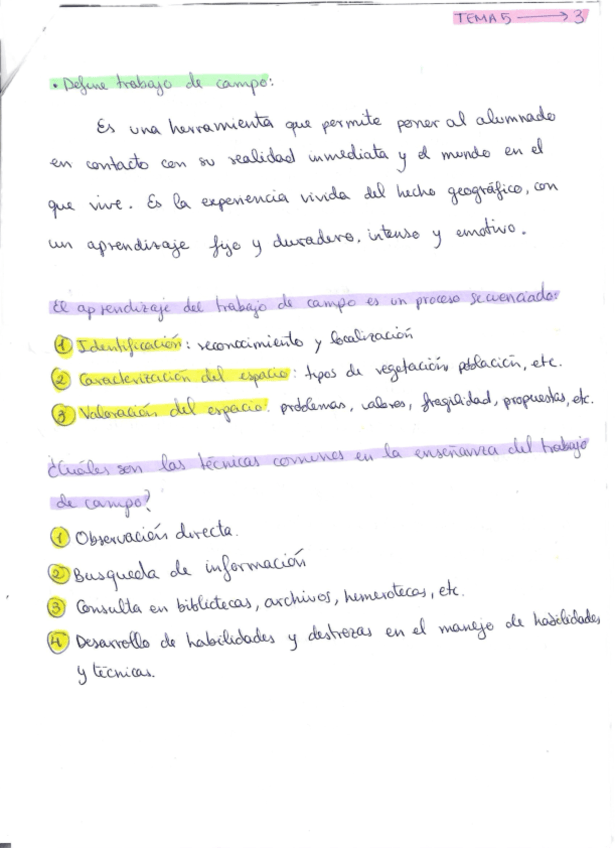 TEMA 5 → 3
· Define trabajo de campo:
Es una herramienta que permite poner al alumnado
en contacto con su realidad inmediata y el mundo en el
que vive. Es la experiencia vivida del hecho geográfico, con
un aprendizaje fijo y duradero, intenso y emotivo.
El aprendizaje del trabajo de campo es un proceso secuenciado:
① Identificación: reconocimiento y localización
② Caracterización del espacio: tipos de vegetación, población, etc.
③ Valoración del espacio: problemas, valores, fragilidad, propuestas, etc.
¿Cuáles son las técnicas comunes en la enseñanza del trabajo
de campo?
① Observación directa.
② Busqueda de información
③ Consulta en bibliotecas, archivos, hemerotecas, etc.
④ Desarrollo de habilidades y destrozas en el manejo de habilidades
y técnicas.